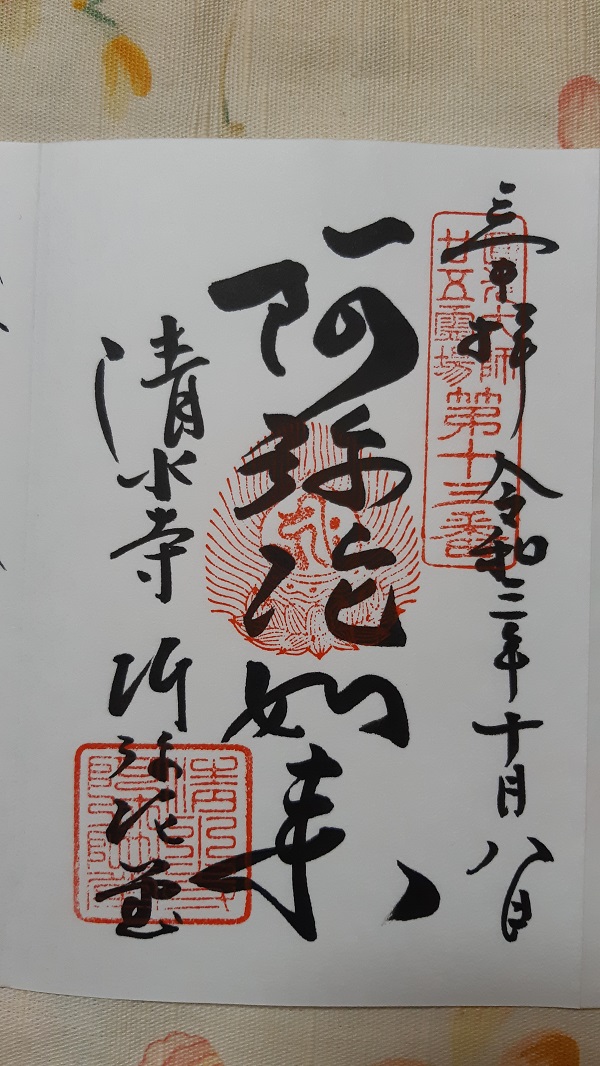 奉拝 令和三年十月八日
圓光大師
廿五霊場
第十三番
阿弥陀如来
清水寺 阿弥陀堂